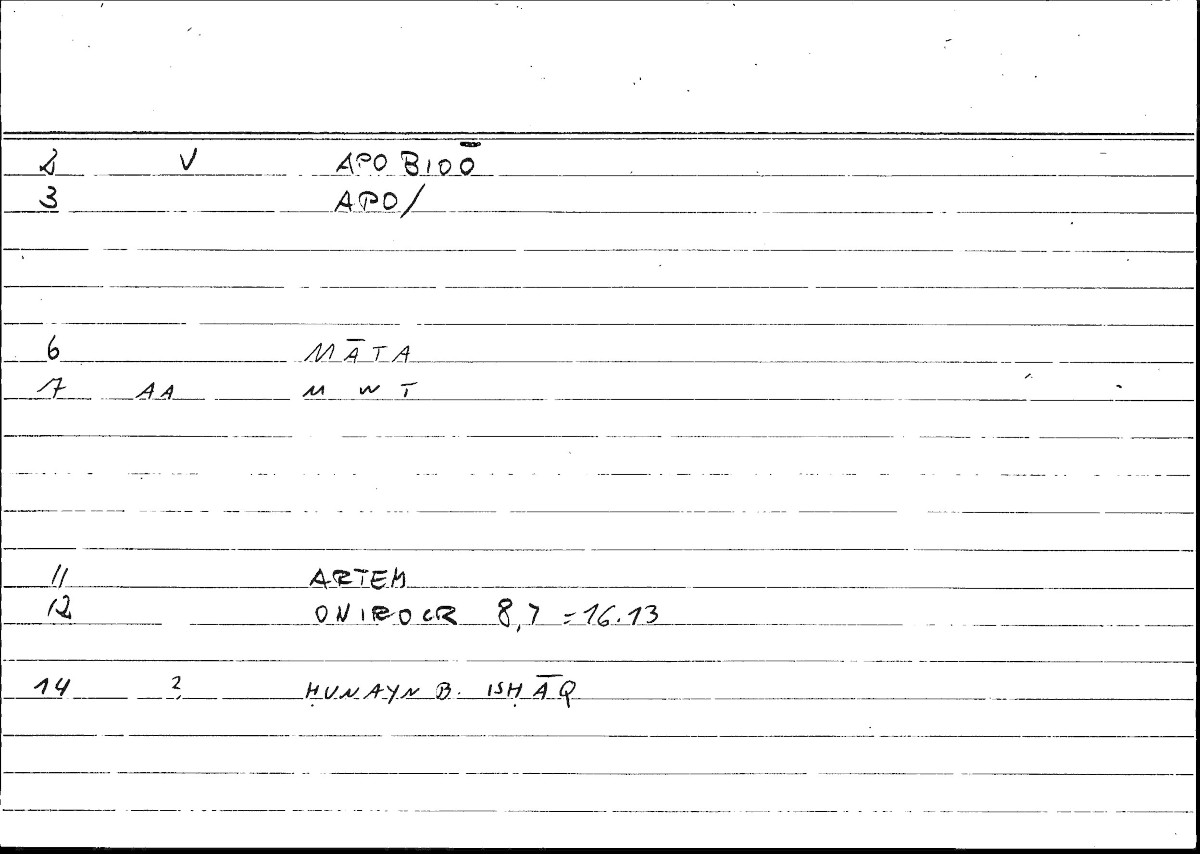 2 V APO B10Ō
3 APO/
6 MĀTA
7 AA M W T
11 ARTEM
12 ONIROCR 8,7 = 16.13
14 2 ḤUNAYN B. ISḤĀQ